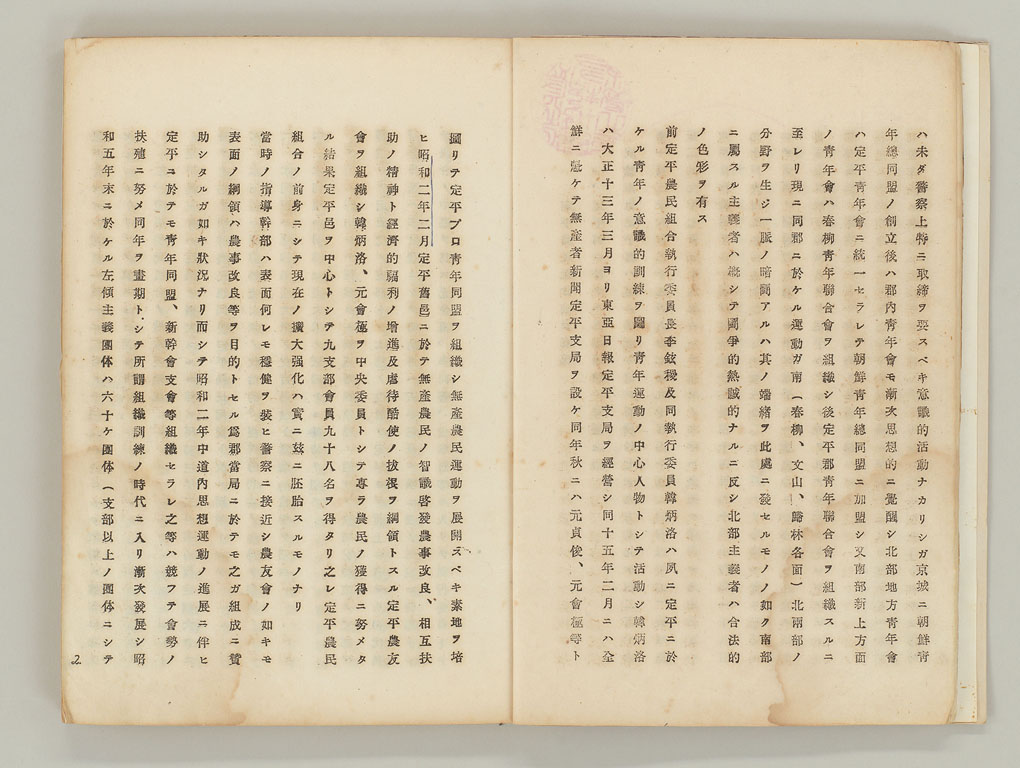 ハ未ダ警察上特ニ取締ヲ要スベキ意識的活動ナカリシガ京城ニ朝鮮青
年總同盟ノ創立後ハ郡內青年會モ漸次思想的ニ覺醒シ北部地方青年會
ハ定平青年會ニ統一セラレテ朝鮮青年總同盟ニ加盟シ又南部新上方面
ノ青年會ハ春柳青年聯合會ヲ組織シ後定平郡青年聯合會ヲ組織スルニ
至レリ現ニ同郡ニ於ケル運動ガ南(春柳、文山、歸林各面)北兩部ノ
分野ヲ生ジ一脈ノ暗鬪アルハ其ノ端緖ヲ此處ニ發セルモノノ如ク南部
ニ屬スル主義者ハ槪シテ鬪爭的熱誠的ナルニ反シ北部主義者ハ合法的
ノ色彩ヲ有ス
前定平農民組合執行委員長李鉉機及同執行委員韓炳洛ハ夙ニ定平ニ於
ケル青年ノ意識的訓練ヲ圖リ青年運動ノ中心人物トシテ活動シ韓炳洛
ハ大正十三年三月ヨリ東亞日報定平支局ヲ經營シ同十五年二月ニハ全
鮮ニ魁ケテ無產者新聞定平支局ヲ設ケ同年秋ニハ元貞俊、元會極等ト
圖リテ定平プロ青年同盟ヲ組織シ無產農民運動ヲ展開スベキ素地ヲ培
ヒ昭和二年二月定平舊邑ニ於テ無產農民ノ智識啓發農事改良、相互扶
助ノ精神ト經濟的福利ノ增進及虐待酷使ノ拔後ヲ綱領トスル定平農友
會ヲ組織シ韓炳洛、元會極ヲ中央委員トシテ專ラ農民ノ獲得ニ努メタ
ル結果定平邑ヲ中心トシテ九支部會員九十八名ヲ得タリ之レ定平農民
組合ノ前身ニシテ現在ノ擴大强化ハ實ニ玆ニ胚胎スルモノナリ
當時ノ指導幹部ハ表面何レモ穩健ヲ裝ヒ警察ニ接近シ農友會ノ如キモ
表面ノ綱領ハ農事改良等ヲ目的トセル爲郡當局ニ於テモ之ガ組成ニ贊
助シタルガ如キ狀況ナリ而シテ昭和二年中道內思想運動ノ進展ニ伴ヒ
定平ニ於テモ青年同盟、新幹會支會等組織セラレ之等ハ競フテ會勢ノ
扶殖ニ努メ同年ヲ畫期トシテ所謂組織訓練ノ時代ニ入リ漸次發展シ昭
和五年末ニ於ケル左傾主義團体ハ六十ケ團体(支部以上ノ團体ニシテ
2